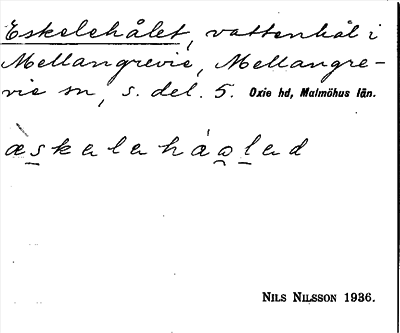 Eskelehålet, vattenhål i
Mellangrevie, Mellangre-
vie sn, s. del. 5. Oxie hd, Malmöhus län.
æskalahåolad
NILS NILSSON 1936.